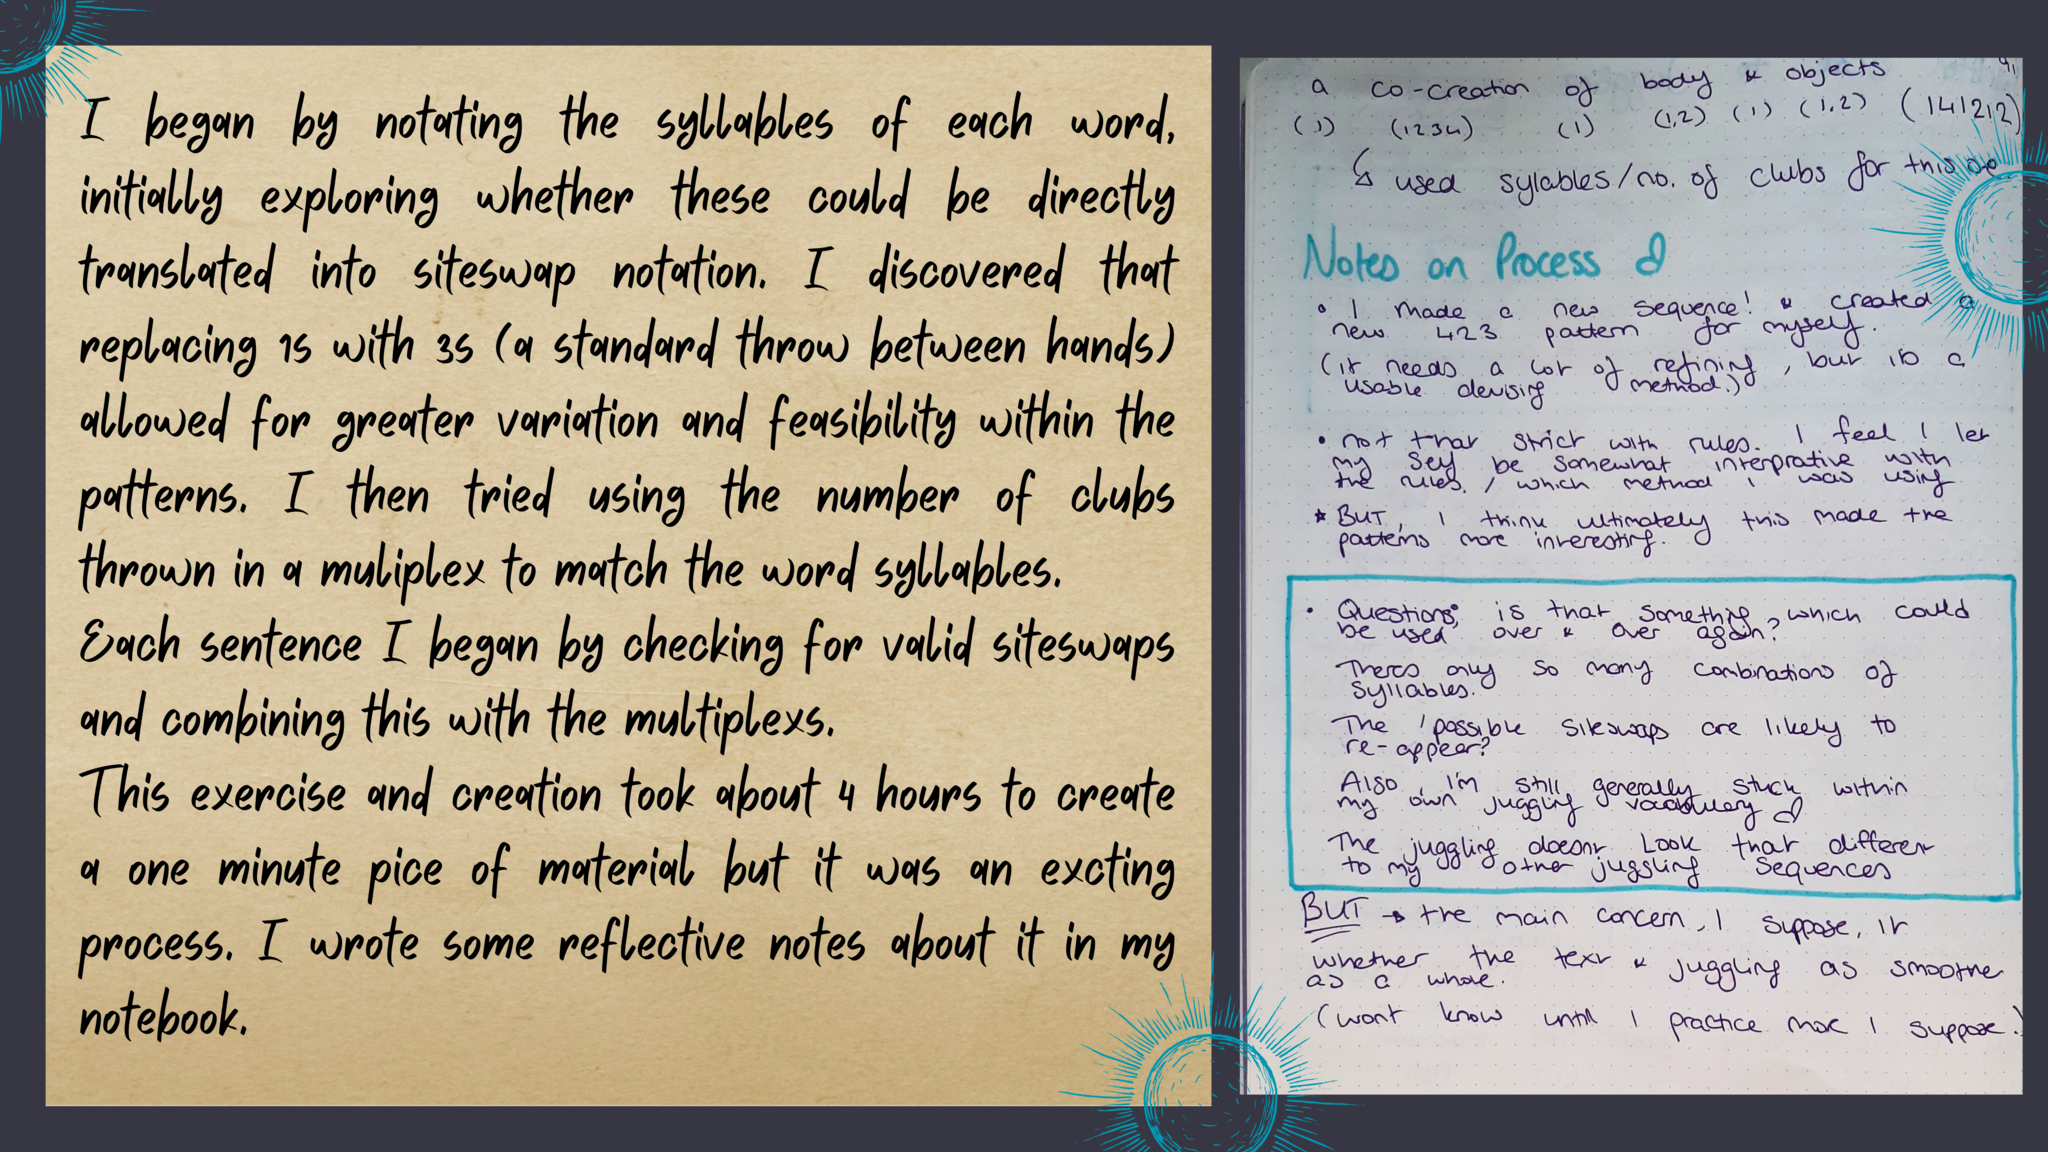 I began by notating the syllables of each word,
initially exploring whether these could be directly
translated into siteswap notation. I discovered that
replacing 1s with 3s (a standard throw between hands)
allowed for greater variation and feasibility within the
patterns. I then tried using the number of clubs
thrown in a muliplex to match the word syllables.
Each sentence I began by checking for valid siteswaps
and combining this with the multiplexs.
This exercise and creation took about 4 hours to create
a one minute pice of material but it was an excting
process. I wrote some reflective notes about it in my
notebook.
a co-creation of body & objects
(1) (1234) (1) (1,2) (1) (1,2) (141212)
used sylables/no. of clubs for this
Notes on Process
• I made a new sequence! & created a
new 423 pattern for myself.
(it needs a lot of refining, but is a
usable devising method.)
• not that strict with rules. I feel I let
my self be somewhat interprative with
the rules, / which method I was using
* BUT, I think ultimately this made the
patterns more interesting.
• Questions; is that something, which could
be used over & over again?
Theres only so many combinations of
syllables.
The possible siteswaps are likely to
re-appear?
Also, I'm still generally stuck within
my own juggling vocabulary
The juggling doesnt look that different
to my other juggling sequences
BUT → the main concern, I suppose, is
whether the text & juggling as smoothe
as a whole.
(wont know until I practice more I suppose.)